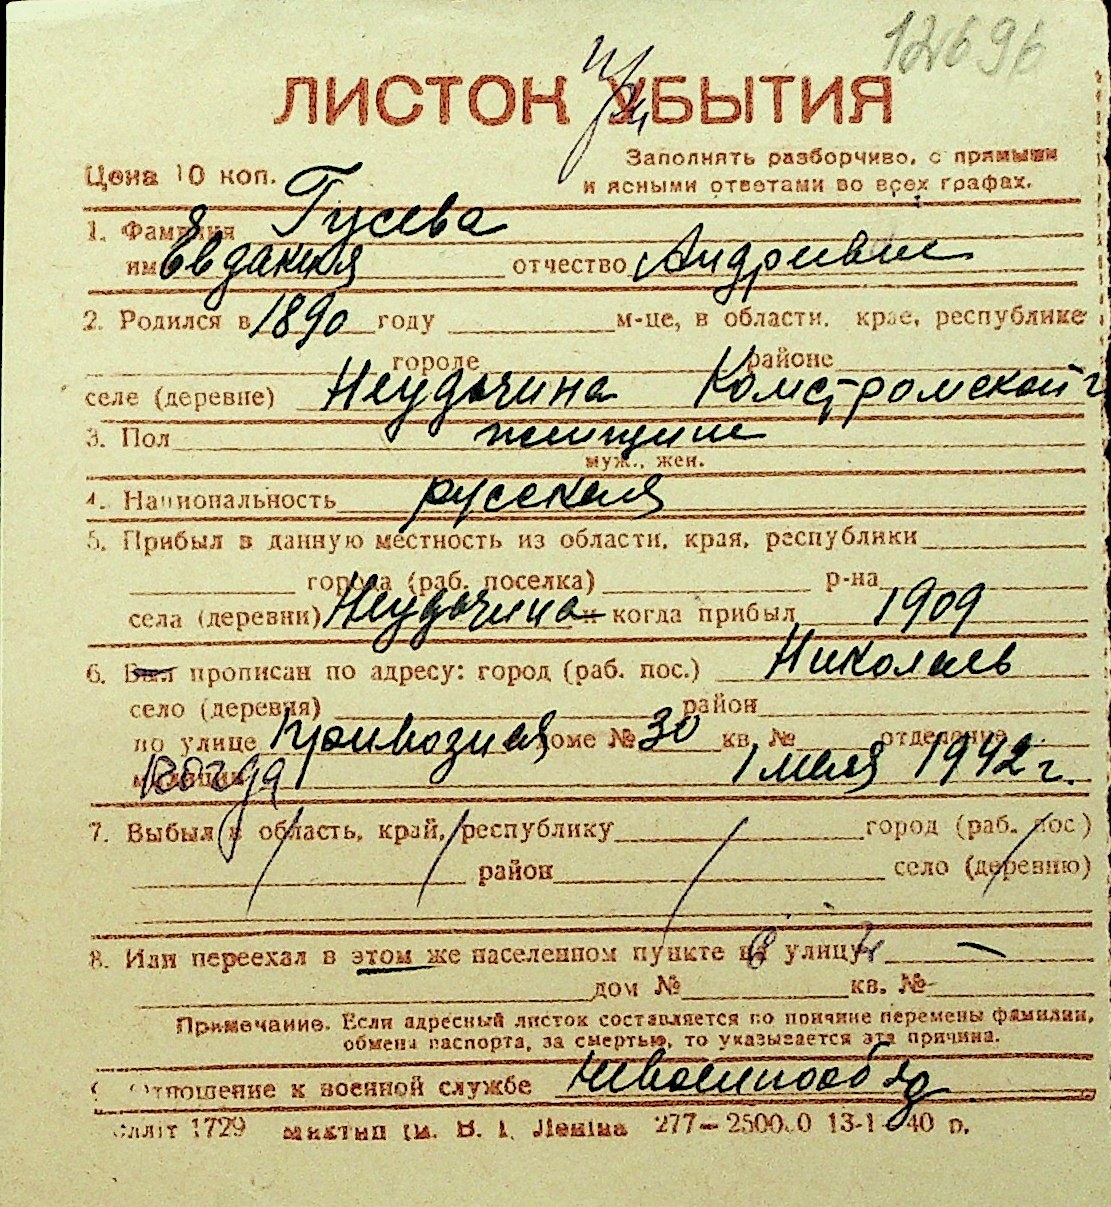 12696
ЛИСТОК УБЫТИЯ
Цена 10 коп.
Заполнять разборчиво, с прямыми
и ясными ответами во всех графах.
1. Фамилия Гусева
имя Евдакия отчество Андривне
2. Родился в 1890 году м-це, в области, крае, республике
городе районе
селе (деревне) Неудачина Комстромской г
3. Пол женщине
муж., жен.
4. Национальность русская
5. Прибыл в данную местность из области, края, республики
города (раб. поселка) р-на
села (деревни) Неудачина и когда прибыл 1909
6. Был прописан по адресу: город (раб. пос.) Николаев
село (деревня) район
по улице Привозная доме № 30 кв. № отделение
милиции когда 1 мая 1942 г.
7. Выбыл в область, край, республику город (раб. пос.)
район село (деревню)
8. Или переехал в этом же населенном пункте на улицу
дом № кв. №
Примечание. Если адресный листок составляется по причине перемены фамилии,
обмена паспорта, за смертью, то указывается эта причина.
Отношение к военной службе невоеннообяз
1729 Леніна 277— 13-1 40 р.